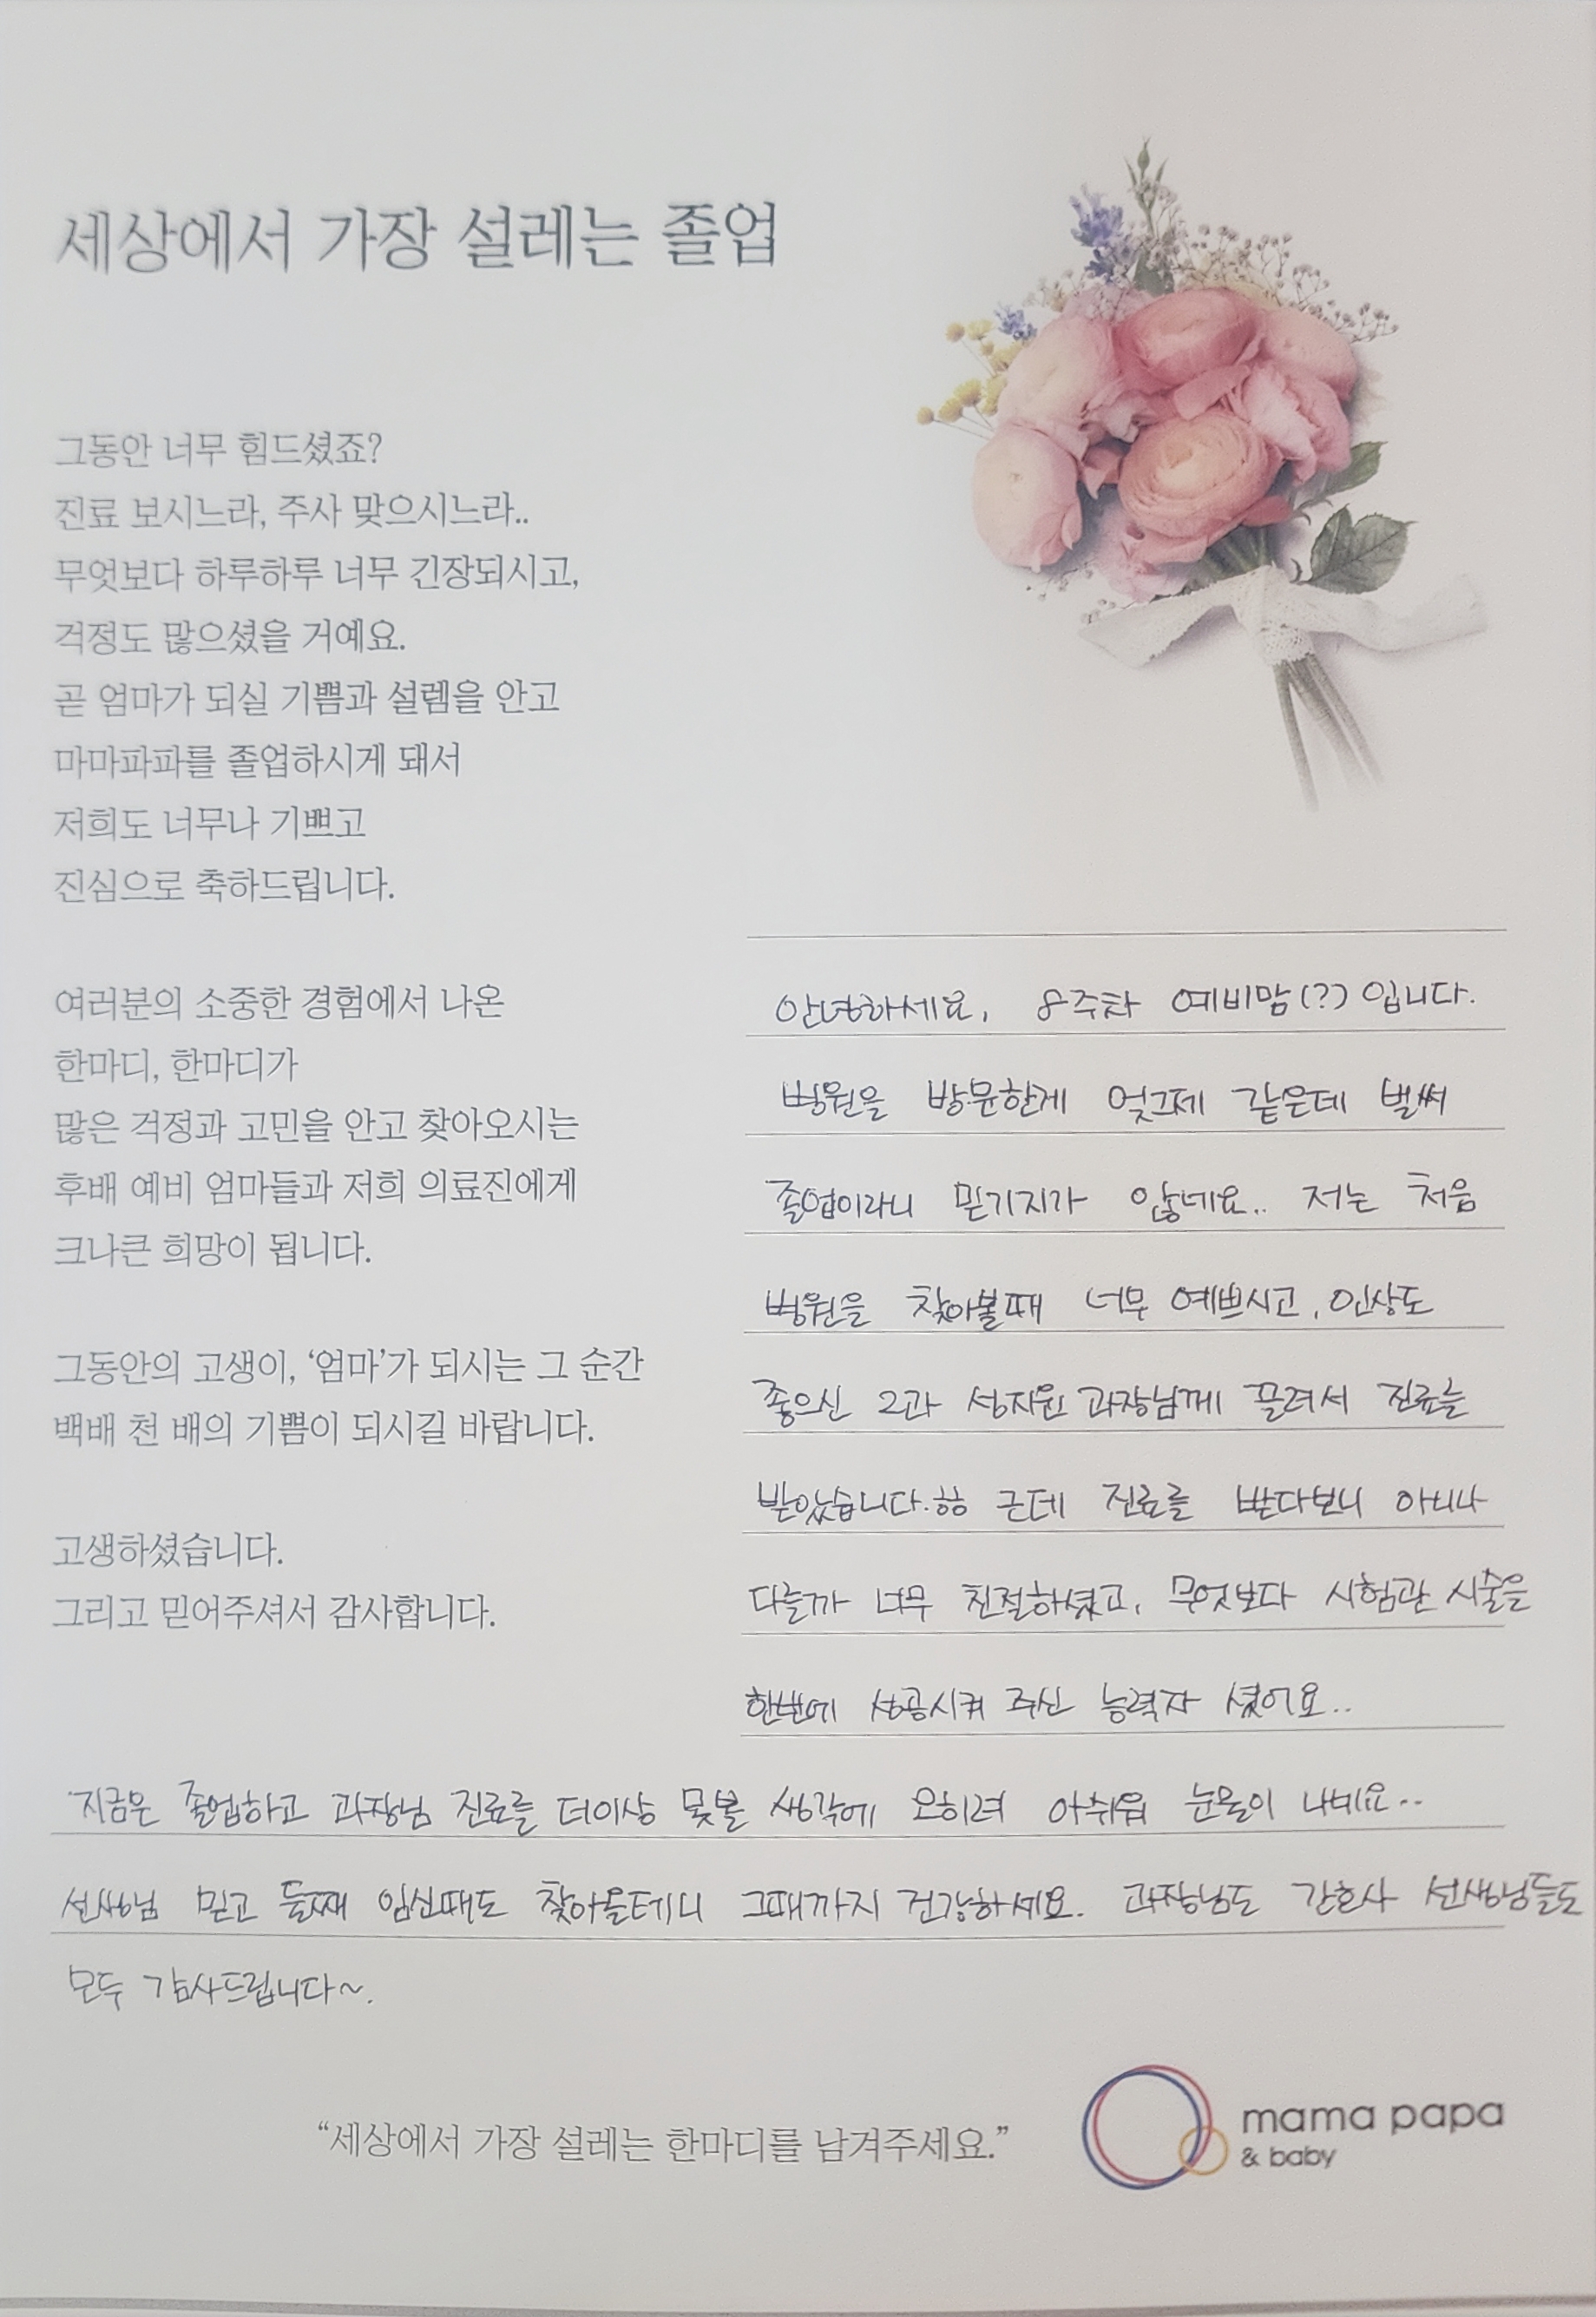 세상에서 가장 설레는 졸업
그동안 너무 힘드셨죠?
진료 보시느라, 주사 맞으시느라..
무엇보다 하루하루 너무 긴장되시고,
걱정도 많으셨을 거예요.
곧 엄마가 되실 기쁨과 설렘을 안고
마마파파를 졸업하시게 돼서
저희도 너무나 기쁘고
진심으로 축하드립니다.
여러분의 소중한 경험에서 나온
한마디, 한마디가
많은 걱정과 고민을 안고 찾아오시는
후배 예비 엄마들과 저희 의료진에게
크나큰 희망이 됩니다.
그동안의 고생이, ‘엄마’가 되시는 그 순간
백배 천 배의 기쁨이 되시길 바랍니다.
고생하셨습니다.
그리고 믿어주셔서 감사합니다.
안녕하세요, 8주차 예비맘(??)입니다.
병원을 방문한게 엊그제 같은데 벌써
졸업이라니 믿기지가 않네요.. 저는 처음
병원을 찾아볼때 너무 예쁘시고, 인상도
좋으신 2과 성지원 과장님께 끌려서 진료를
받았습니다.ㅎㅎ 근데 진료를 받다보니 아니나
다를까 너무 친절하셨고, 무엇보다 시험관 시술을
한번에 성공시켜 주신 능력자 셨어요..
지금은 졸업하고 과장님 진료를 더이상 못볼 생각에 오히려 아쉬워 눈물이 나네요..
선생님 믿고 둘째 임신때도 찾아올테니 그때까지 건강하세요. 과장님도 간호사 선생님들도
모두 감사드립니다~.
“세상에서 가장 설레는 한마디를 남겨주세요.”
mama papa
& baby